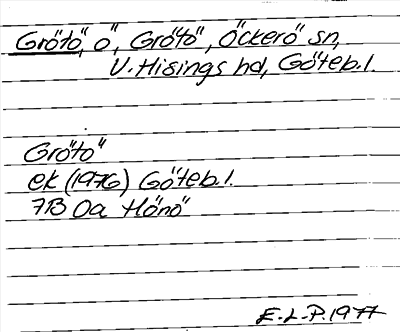 Grötö, ö, Grötö, Öckerö sn,
V. Hisings hd, Göteb. l.
Grötö
ek (1976) Göteb. l.
7B 0a Hönö
E. L-P. 1977